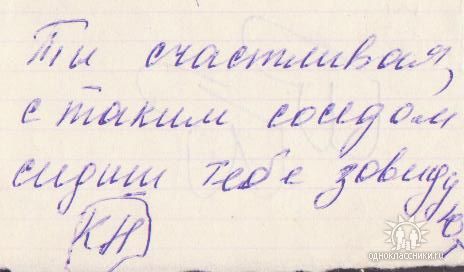 Ты счастливая,
с таким соседом
сидиш тебе завиду
ЮТ
КН
одноклассники.ru